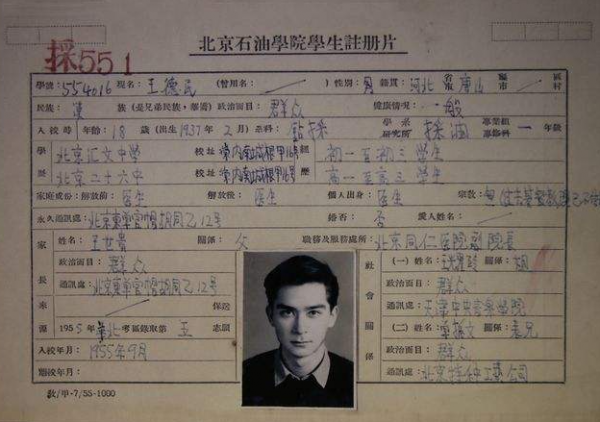 北京石油學院學生註册片
採551
學號:554016 現名:王德民 (曾用名: ) 性别:男 籍貫:河北 省市 唐山 縣市 區村
民族:漢 族(是兄弟民族,華裔) 政治面目:群众 健康情况:一般
入校時年齡:18 歲(出生1937年2月)系科:鉆採 學系 研究所 採油 專業組 專修科 一年級
學 北京汇文中学 校址 經 初一至初三 学生
北京二十六中 校址 歷 高一至高三 学生
家庭成份:解放前:医生 解放後:医生 個人出身:医生 宗教:
永久通訊處:北京東單官帽胡同乙12号 婚否:否 愛人姓名:
家 姓名:王世貴 關係:父 職務及服務處所:北京同仁医院副院長
政治面目:群众
長 通訊處:北京東單官帽胡同乙12号
來 保送
源 1955年華北考區錄取第五志願
入校年月:1955年9月
離校年月:
教/甲-7/55-1000
社會關係
(一)姓名: 關係:
政治面目:群众
通訊處:天津中央音樂学院
(二)姓名: 關係:表兄
政治面目:群众
通訊處:北京特种工藝公司